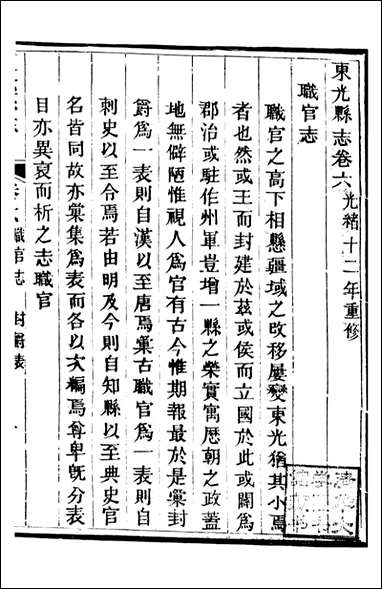 東光縣志卷六 光緒十二年重修
職官志
職官之高下相懸疆域之改移屢變東光猶其小焉
者也然或王而封建於茲或侯而立國於此或闢爲
郡治或駐作州軍豈增一縣之榮實寓歷朝之政蓋
地無僻陋惟視人爲官有古今惟期報最於是彙封
爵爲一表則自漢以至唐焉彙古職官爲一表則自
刺史以至令焉若由明及今則自知縣以至典史官
名皆同故亦彙集爲表而各以次編焉尊卑旣分表
目亦異裒而析之志職官
職官志 封爵表